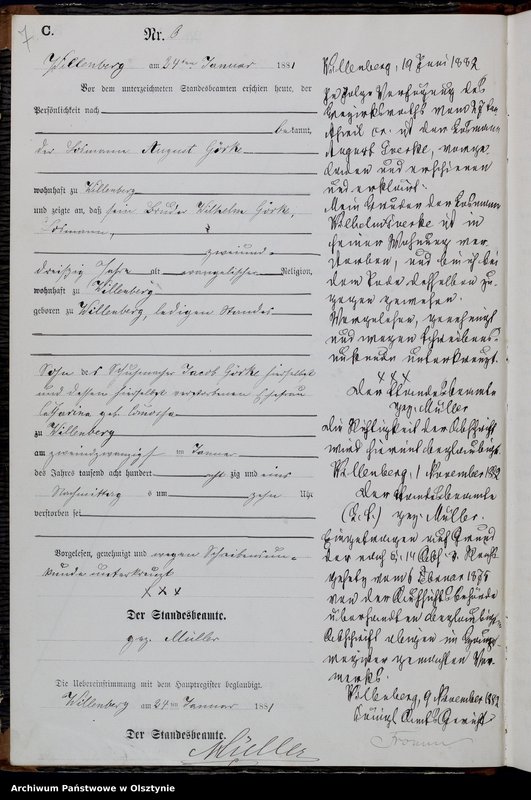 7
C.
Nr. 6
Willenberg am 24ten Januar 1881
Vor dem unterzeichneten Standesbeamten erschien heute, der
Persönlichkeit nach
bekannt,
der Losmann August Görke
wohnhaft zu Willenberg
und zeigte an, daß sein Bruder Wilhelm Görke,
Losmann,
zweiund-
dreißig Jahre alt evangelischer Religion,
wohnhaft zu Willenberg
geboren zu Willenberg, ledigen Standes
Sohn des Schuhmacher Jacob Görke hierselbst
und dessen hierselbst verstorbenen Ehefrau
Catharina geb.
zu Willenberg
am zweiundzwanzigsten Januar
des Jahres tausend acht hundert achtzig und eins
Nachmittags um zehn Uhr
verstorben sei
Vorgelesen, genehmigt und wegen Schreibensun-
kunde unterkreuzt
x x x
Der Standesbeamte.
gez. Müller
Die Uebereinstimmung mit dem Hauptregister beglaubigt.
Willenberg am 24ten Januar 1881
Der Standesbeamte.
Müller
Willenberg, 19 Juni 1882
Zufolge Verfügung des
Bezirksraths vom 27ten
April cr. ist der Losmann
August Goerke, vorge-
laden und erschienen
und erklärt:
Mein Bruder der Losmann
Wilhelm Goerke ist in
seiner Wohnung ver-
storben, und bin ich bei
dem Tode desselben zu-
gegen gewesen.
Vorgelesen, genehmigt
und wegen Schreibens-
unkunde unterkreuzt.
x x x
Der Standesbeamte
gez. Müller
Die Richtigkeit der Abschrift
wird hiermit beglaubigt.
Willenberg, 1 November 1882
Der Standesbeamte
(L. S.) gez. Müller.
Eingetragen auf Grund
der nach § 14 Abs. 3. Reichs-
gesetz vom 6 Februar 1875
von der Aufsichtsbehörde
übersandten beglaubigten
Abschrift obigen im Haupt-
register gemachten Ver-
merks.
Willenberg, 9 November 1882
Königl. Amts Gericht
Archiwum Państwowe w Olsztynie